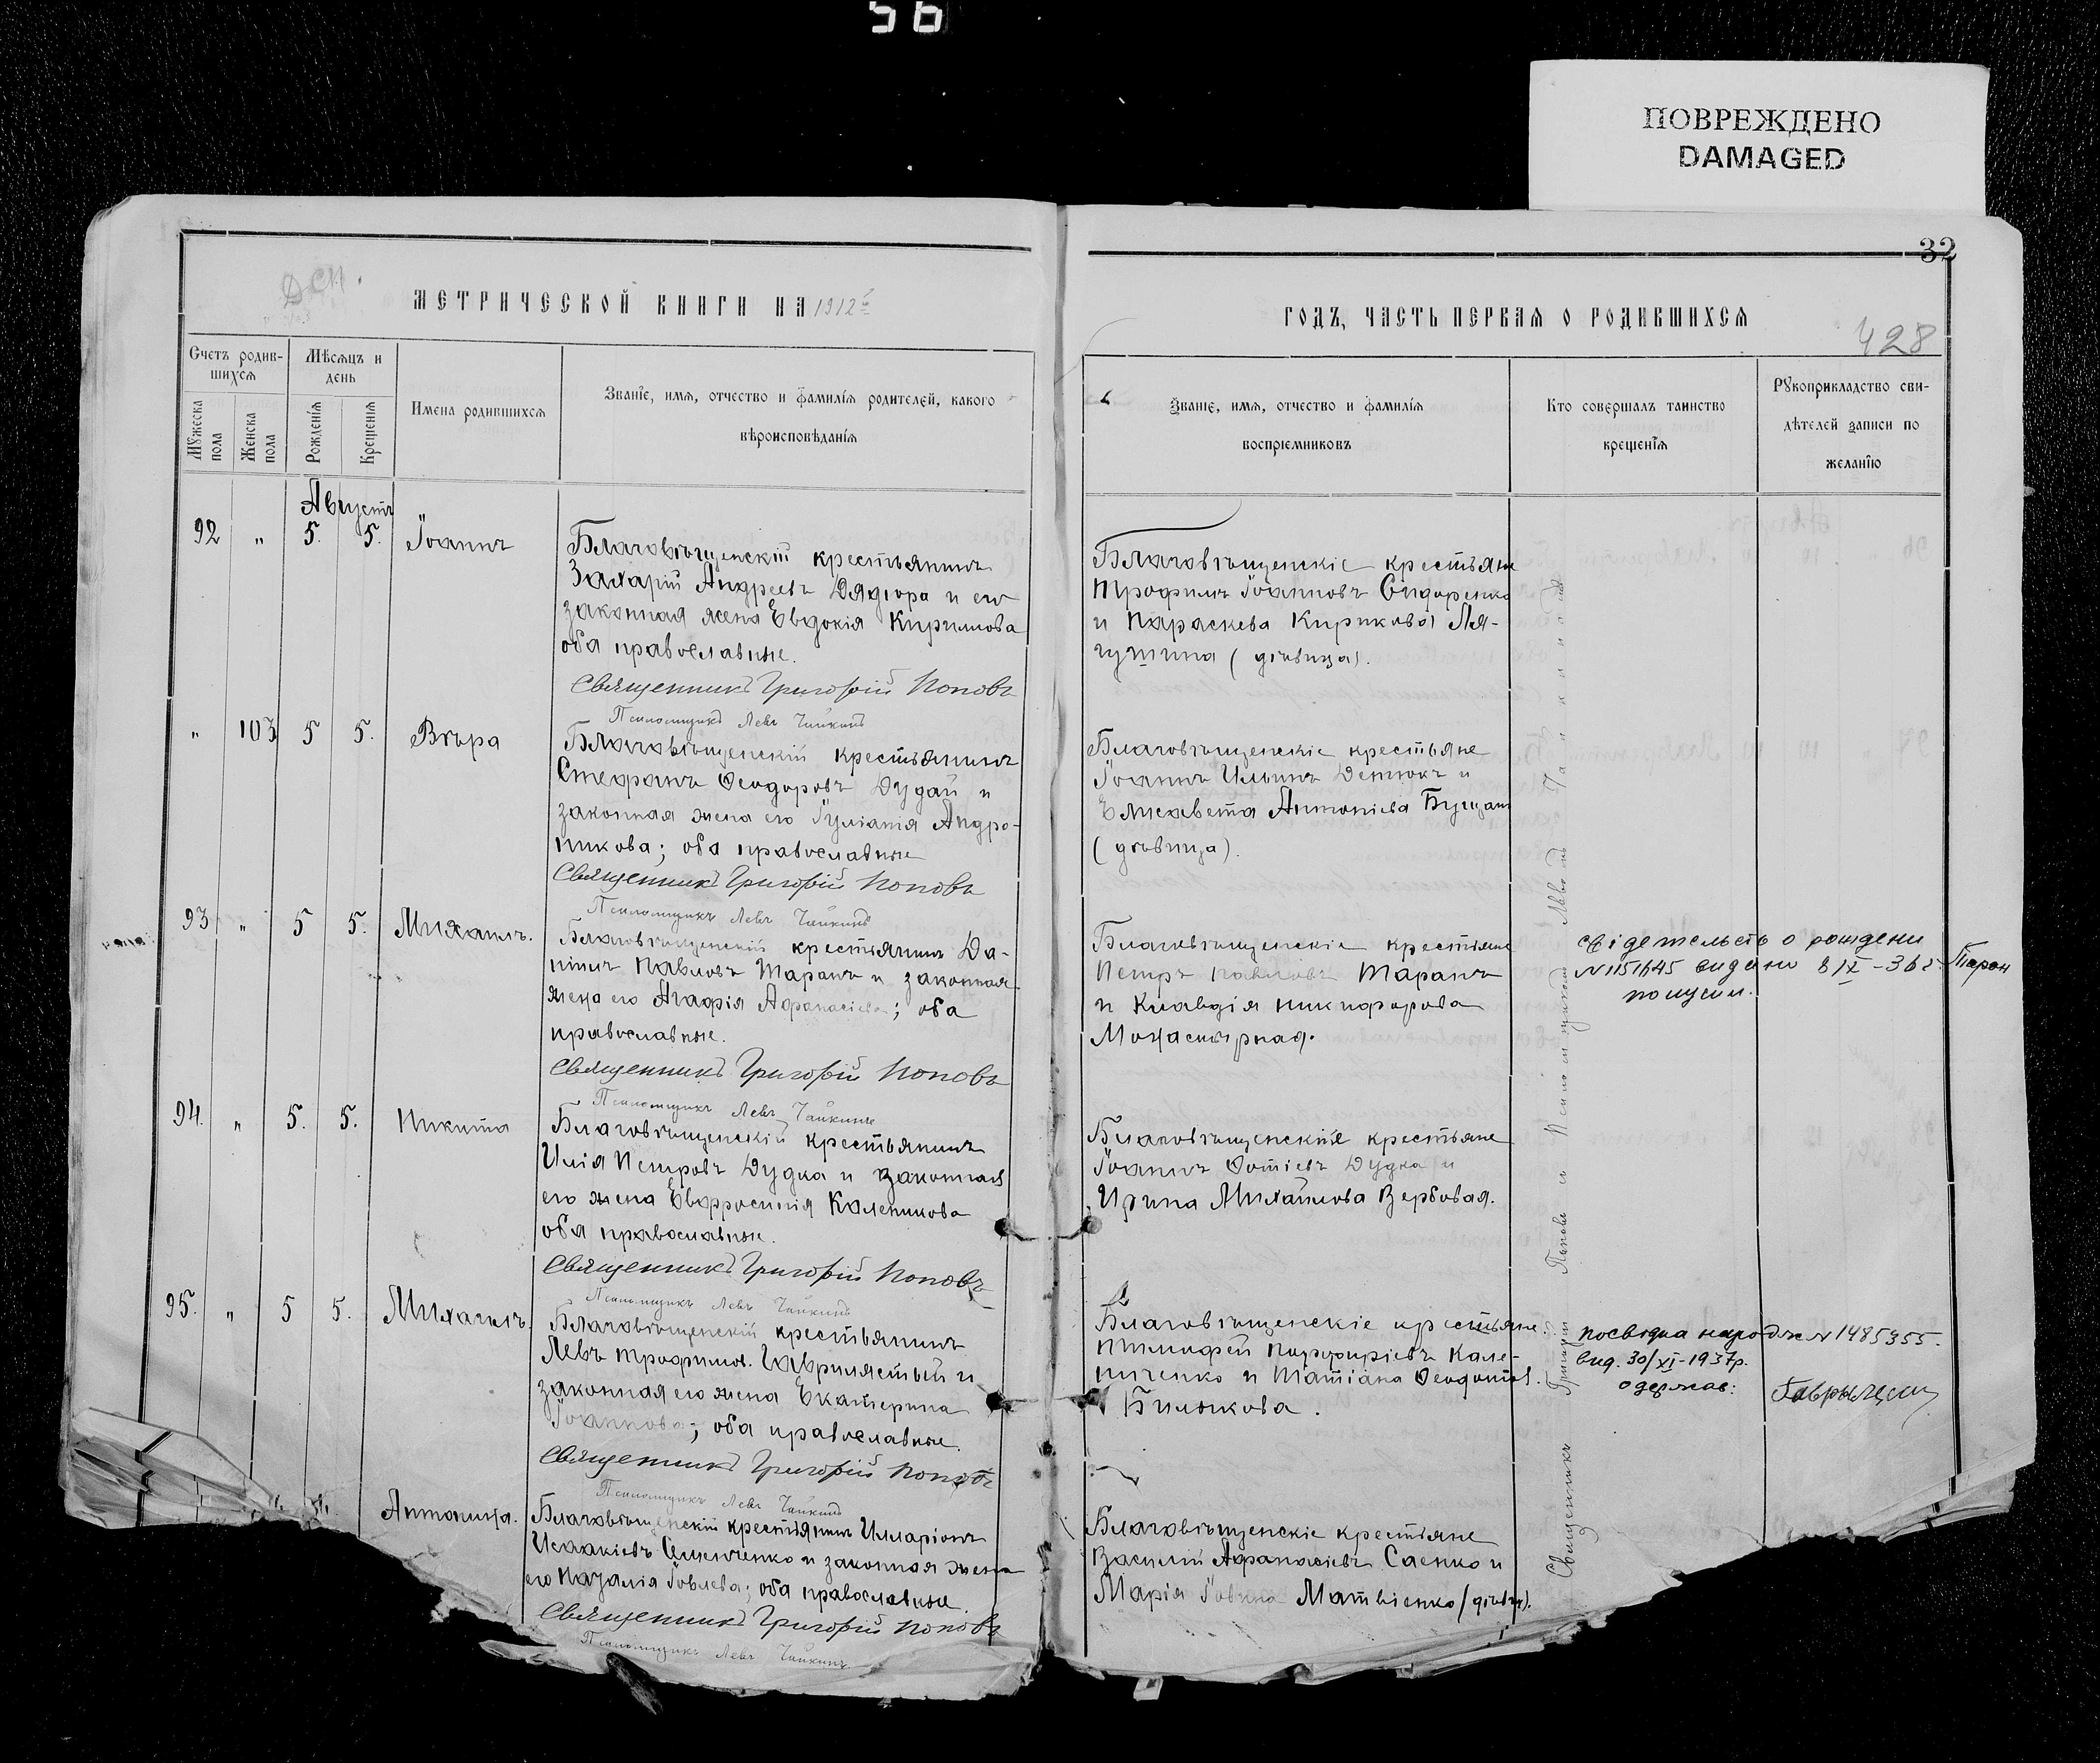 56
ПОВРЕЖДЕНО
DAMAGED
32
ДСП.
МЕТРИЧЕСКОЙ КНИГИ НА 1912 г
ГОДЪ, ЧАСТЬ ПЕРВАЯ О РОДИВШИХСЯ
428
Счетъ родив-
шихся
Мѣсяцъ и
день
Мужеска
пола
Женска
пола
Рожденія
Крещенія
Имена родившихся
Званіе, имя, отчество и фамилія родителей, какого
вѣроисповѣданія
Званіе, имя, отчество и фамилія
воспріемниковъ
Кто совершалъ таинство
крещенія
Рукоприкладство сви-
дѣтелей записи по
желанію
Августъ
92 " 5. 5. Іоаннъ
Благовѣщенскій крестьянинъ
Захарій Андреевъ Дядюра и его
законная жена Евдокія Кирилова
оба православные.
Священникъ Григорій Поповъ
Псаломщикъ Левъ Чайкинъ
Благовѣщенскіе крестьяне
Трофимъ Іоанновъ Сидоренко
и Параскева Кирикова Ля-
гушина (дѣвица).
" 103 5 5. Вѣра
Благовѣщенскій крестьянинъ
Стефанъ Ѳеодоровъ Дудай и
законная жена его Іуліанія Андро-
никова; оба православные
Священникъ Григорій Поповъ
Псаломщикъ Левъ Чайкинъ
Благовѣщенскіе крестьяне
Іоаннъ Ильинъ Детюкъ и
Елисавета Антоніева Буцан
(дѣвица).
93 " 5 5. Михаилъ.
Благовѣщенскій крестьянинъ Да-
ніилъ Павловъ Таранъ и законная
жена его Агафія Афанасіева; оба
православные.
Священникъ Григорій Поповъ
Псаломщикъ Левъ Чайкинъ
Благовѣщенскіе крестьяне
Петръ Павловъ Таранъ
и Клавдія Никифорова
Монастырная.
свідетельств о рождени
N1151645 видано 8/IX-36 г. Таран
получил.
94. " 5. 5. Никита
Благовѣщенскій крестьянинъ
Илія Петровъ Дудка и законная
его жена Евфросинія Каленикова
оба православные.
Священникъ Григорій Поповъ
Псаломщикъ Левъ Чайкинъ
Благовѣщенскіе крестьяне
Іоаннъ Фотіевъ Дудка и
Ирина Михайлова Вербовая.
95. " 5 5. Михаилъ.
Благовѣщенскій крестьянинъ
Левъ Трофимов. Гаврилястый и
законная его жена Екатерина
Іоаннова; оба православные.
Священникъ Григорій Поповъ
Псаломщикъ Левъ Чайкинъ
Благовѣщенскіе крестьяне:
Тимофей Порфиріевъ Кале-
ниченко и Татіана Ѳеодотов.
Билыкова.
посвідка народж N 1485355.
вид. 30/XI-1937р.
одержав:
Антонина.
Благовѣщенскій крестьянинъ Илларіонъ
Исаакіевъ Семенченко и законная жена
его Наталія Іовлева; оба православные.
Священникъ Григорій Поповъ
Псаломщикъ Левъ Чайкинъ
Благовѣщенскіе крестьяне
Василій Афанасіевъ Саенко и
Марія Іовина Матвіенко (дѣвиц).
Священникъ Григорій Поповъ и Псаломщикъ Левъ